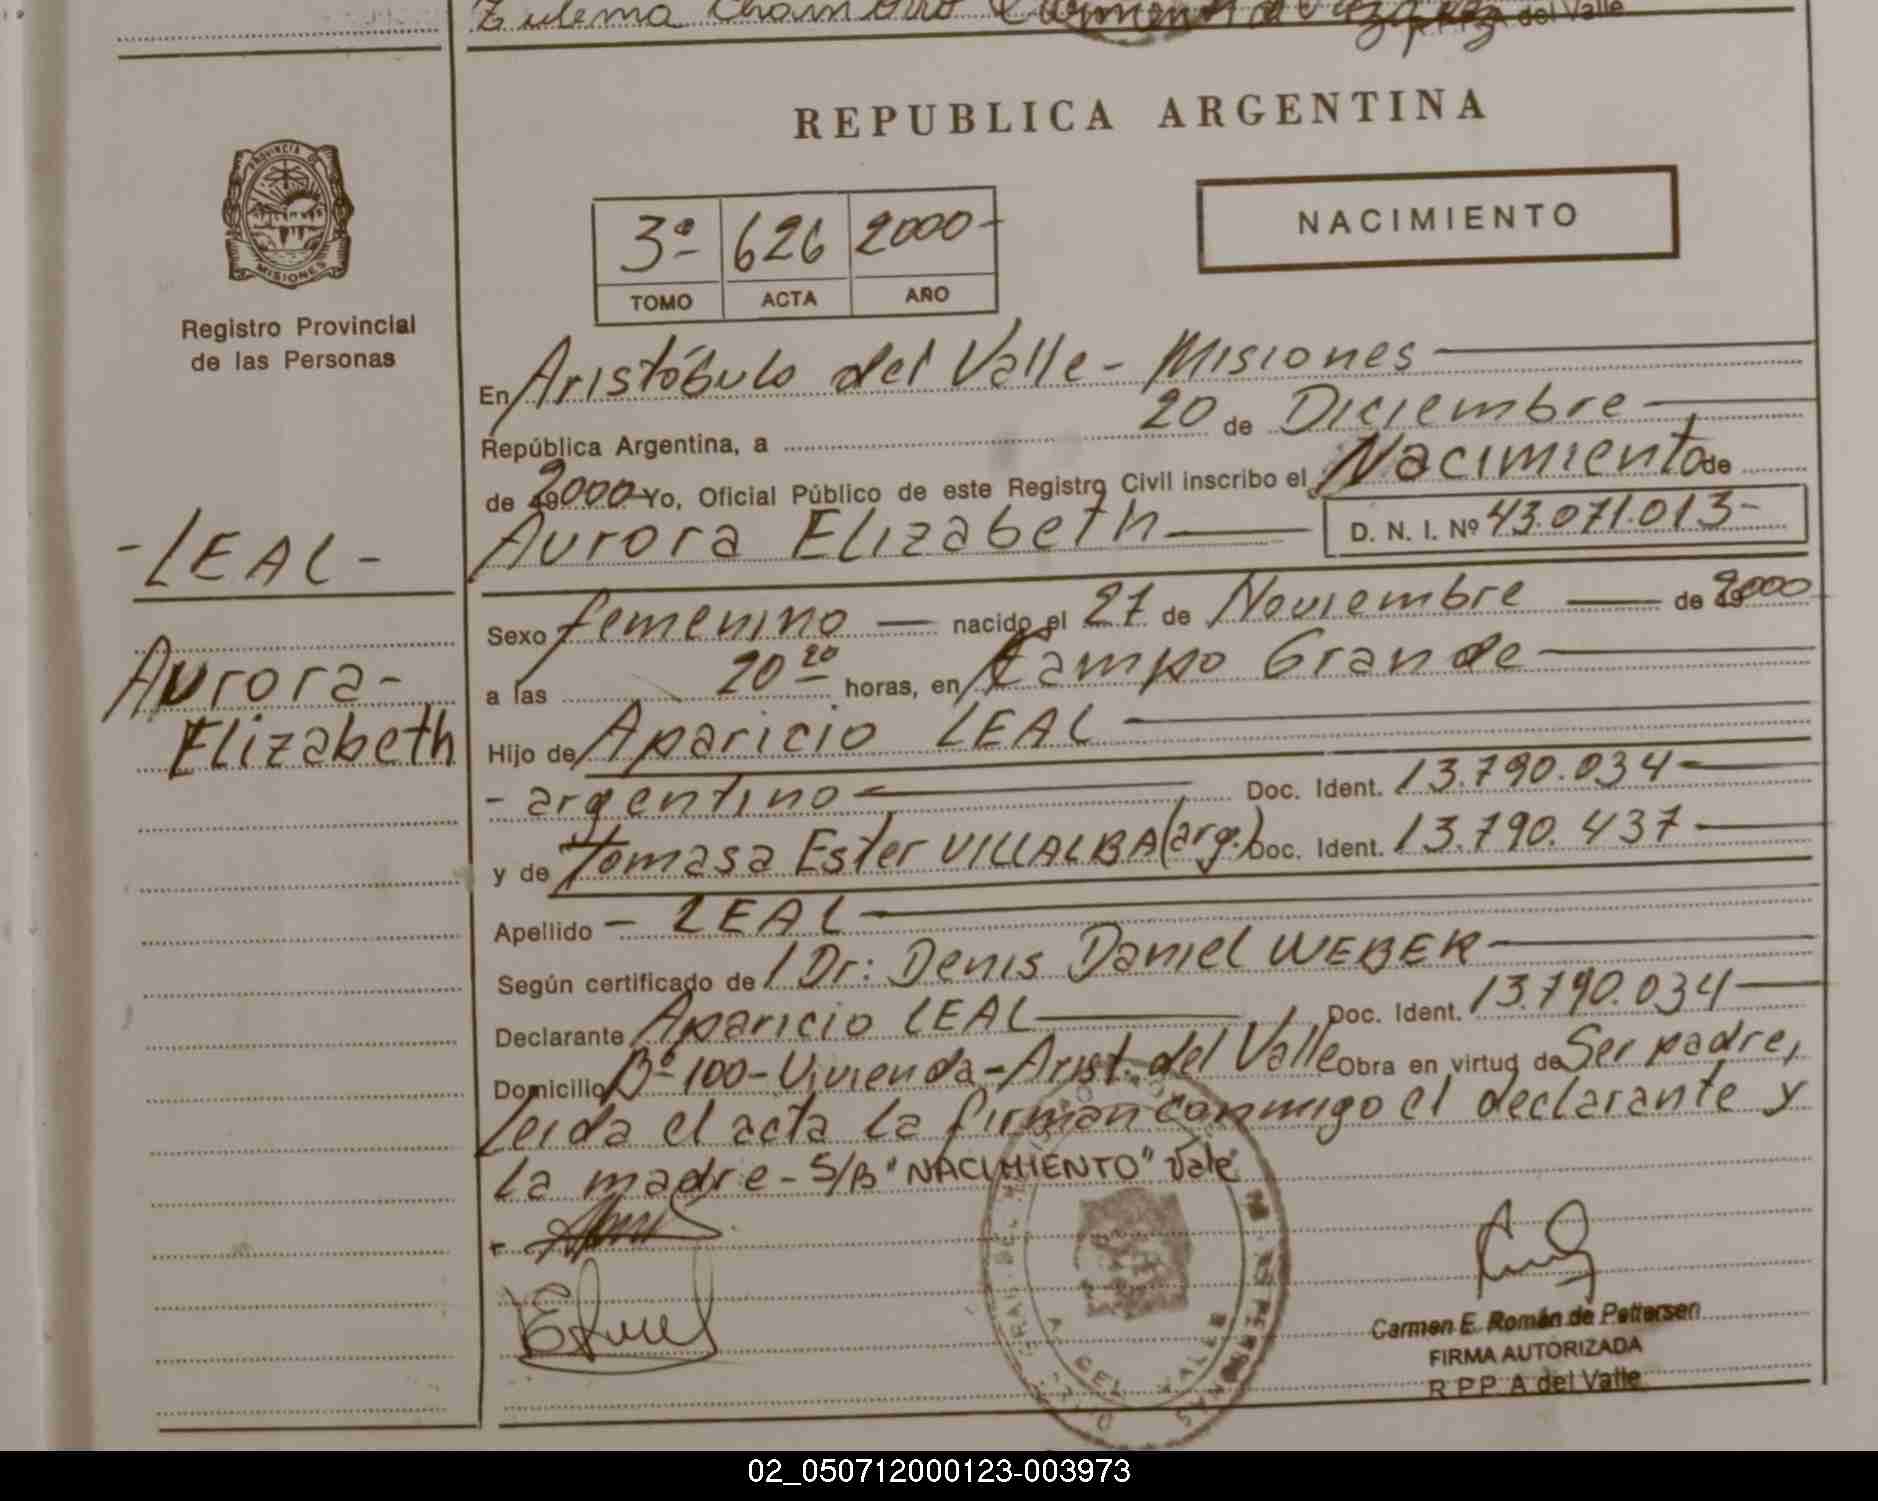 Zulema
del Valle
REPUBLICA ARGENTINA
PROVINCIA DE
MISIONES
Registro Provincial
de las Personas
3º 626 2000-
TOMO ACTA AÑO
NACIMIENTO
En Aristóbulo del Valle - Misiones
República Argentina, a 20 de Diciembre
de 192000 Yo, Oficial Público de este Registro Civil inscribo el Nacimiento de
Aurora Elizabeth D. N. I. Nº 43.071.013-
-LEAL-
Aurora-
Elizabeth
Sexo femenino nacido el 27 de Noviembre de 192000
a las 20 20 horas, en Campo Grande
Hijo de Aparicio LEAL
- argentino Doc. Ident. 13.790.034
y de Tomasa Ester VILLALBA (arg.) Doc. Ident. 13.790.437
Apellido - LEAL
Según certificado de Dr: Denis Daniel WEBER
Declarante Aparicio LEAL Doc. Ident. 13.790.034
Domicilio Bº 100-Vivienda-Arist. del Valle Obra en virtud de Ser padre,
Leida el acta la firman conmigo el declarante y
la madre - S/B "NACIMIENTO" Vale
A. DEL VALLE
Carmen E. Román de Pettersen
FIRMA AUTORIZADA
R.P.P. A del Valle
02_050712000123-003973